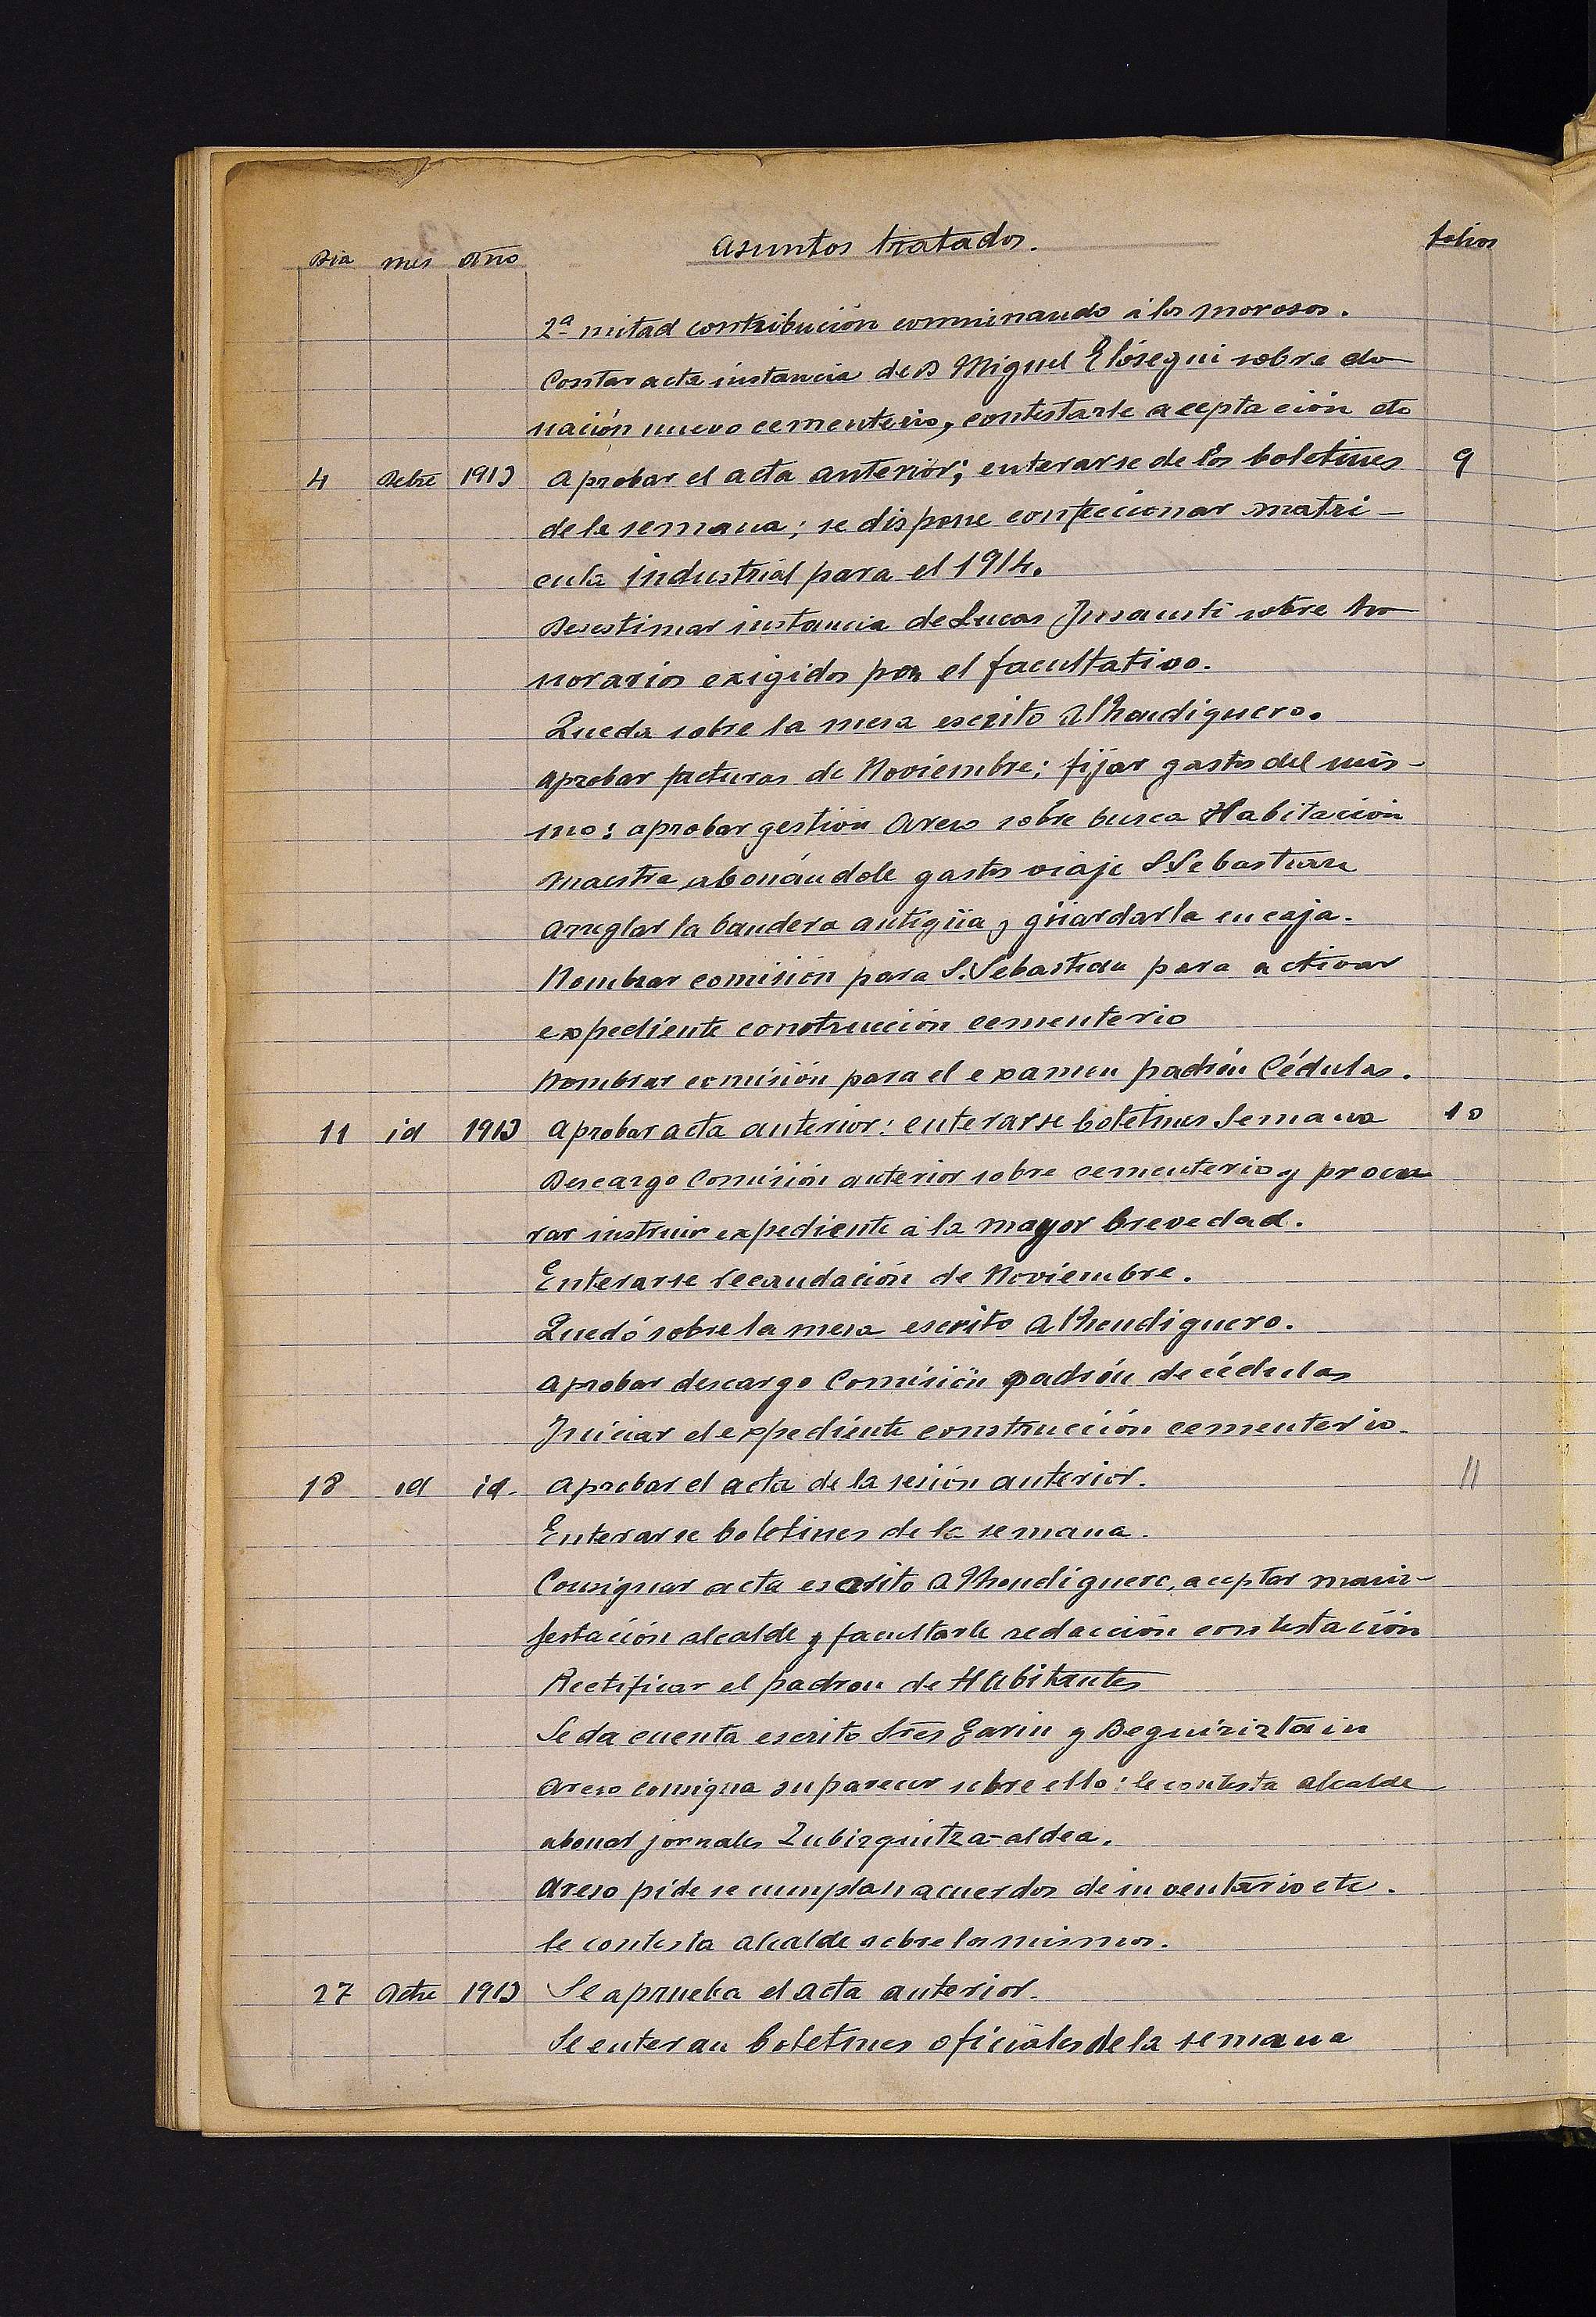 Dia mes Año Asuntos tratados. folios
2ª mitad contribución conminando á los morosos.
Constar acta instancia de D Miguel Elósegui sobre do
nación nuevo cementerio, contestarle aceptación etc
4 Dcbre 1913 Aprobar el acta anterior; enterarse de los boletines 9
de la semana; se dispone confeccionar matri-
cula industrial para el 1914.
Desestimar instancia de Lucas Insausti sobre ho
norarios exigidos por el facultativo.
Queda sobre la mesa escrito Alhondiguero.
Aprobar facturas de Noviembre; fijar gastos del mis-
mo: aprobar gestión Areso sobre busca Habitación
maestra abonándole gastos viaje S.Sebastian
Arreglar la bandera antigüa y güardarla en caja.
Nombrar comisión para S.Sebastian para activar
expediente construcción cementerio
Nombrar comisión para el examen padrón Cédulas.
11 id 1913 Aprobar acta anterior: enterarse boletines Semana 10
Descargo Comisión anterior sobre cementerio y procu
rar instruir expediente á la mayor brevedad.
Enterarse recaudación de Noviembre.
Quedó sobre la mesa escrito Alhondiguero.
Aprobar descargo Comisión padrón de cédulas
Iniciar el expediente construcción cementerio.
18 id id. Aprobar el acta de la sesión anterior. 11
Enterarse boletines de la semana.
Consignar acta escrito Alhondiguero, aceptar mani-
festación alcalde y facultarle redacción contestación
Rectificar el padron de Habitantes
Se da cuenta escrito Sres Garin y Beguiriztain
Areso consigna su parecer sobre ello: le contesta alcalde
abonar jornales Zubizguitza-aldea.
Areso pide se cumplan acuerdos de inventario etc.
le contesta alcalde sobre los mismos.
27 Dcbre 1913 Se aprueba el acta anterior.
Se enteran boletines oficiales de la semana